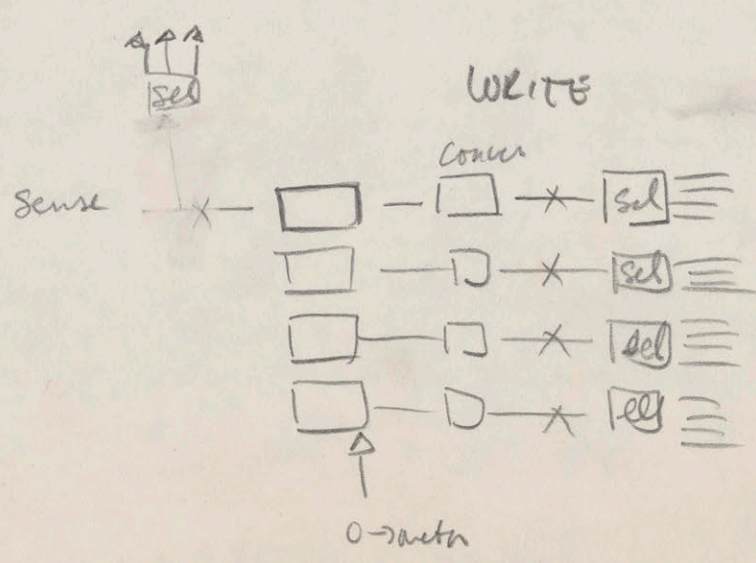 sel
WRITE
Conver
Sense
sel
sel
sel
sel